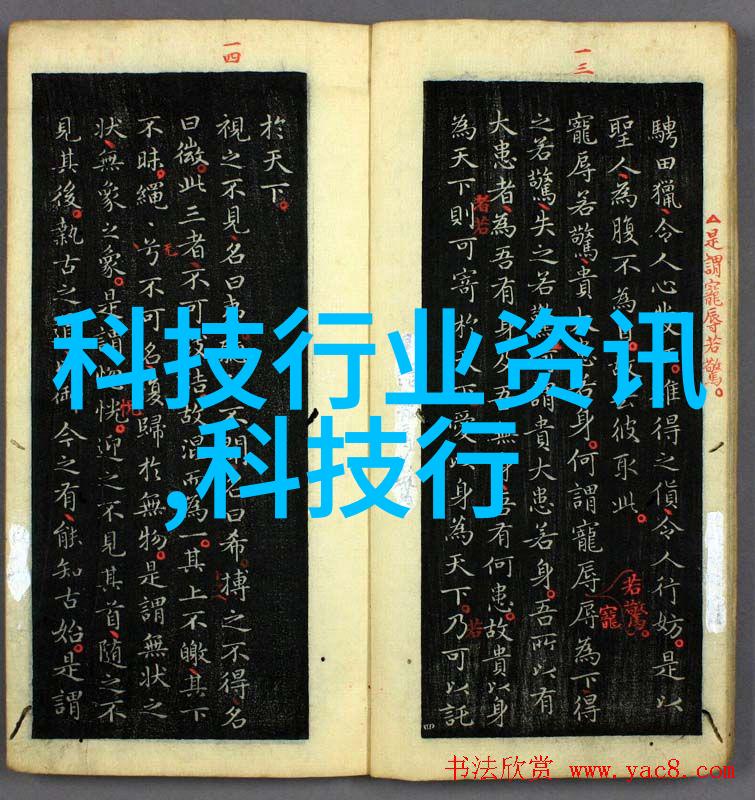 一三
△是謂寵辱若驚。
騁田獵、令人心發。難得之貨、令人行妨。是以
聖人、為腹不為去彼取此。
寵辱若驚、貴大患若身。何謂寵辱辱為下、得
之若驚、失之若驚謂貴大患若身。吾所以有
若驚。
寵
大患者、為吾有身及吾無身、吾有何患。故貴以身
者若
為天下則可寄於天下愛以身為天下。乃可以託
若
一四
於天下。
視之不見、名曰夷不聞名曰希。搏之不得、名
曰微。此三者、不可致詰故混而為一。其上不皦、其下
不昧。繩、兮不可名復歸於無物。是謂無狀之
狀、無象之象。是謂惚恍。迎之不見其首、隨之不
見其後。執古之御今之有、能知古始。是謂
科技行业资讯
,科技行
书法欣赏 www.yac8.com